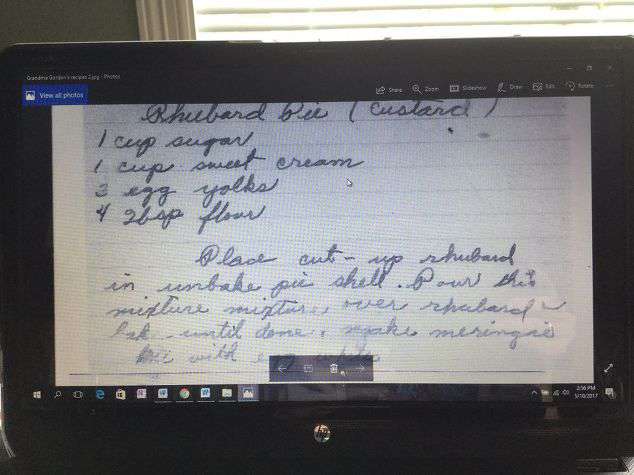 Grandma Gordon's recipes 2.jpg - Photos
View all photos
Share Zoom Slideshow Draw Edit Rotate
Rhubard Pie (Custard)
1 cup sugar
1 cup sweet cream
3 egg yolks
4 tbsp flour
Place cut-up rhubard
in unbake pie shell. Pour this
mixture mixture over rhubard -
bake until done. make meringue
with egg
2:56 PM
5/10/2017
hp